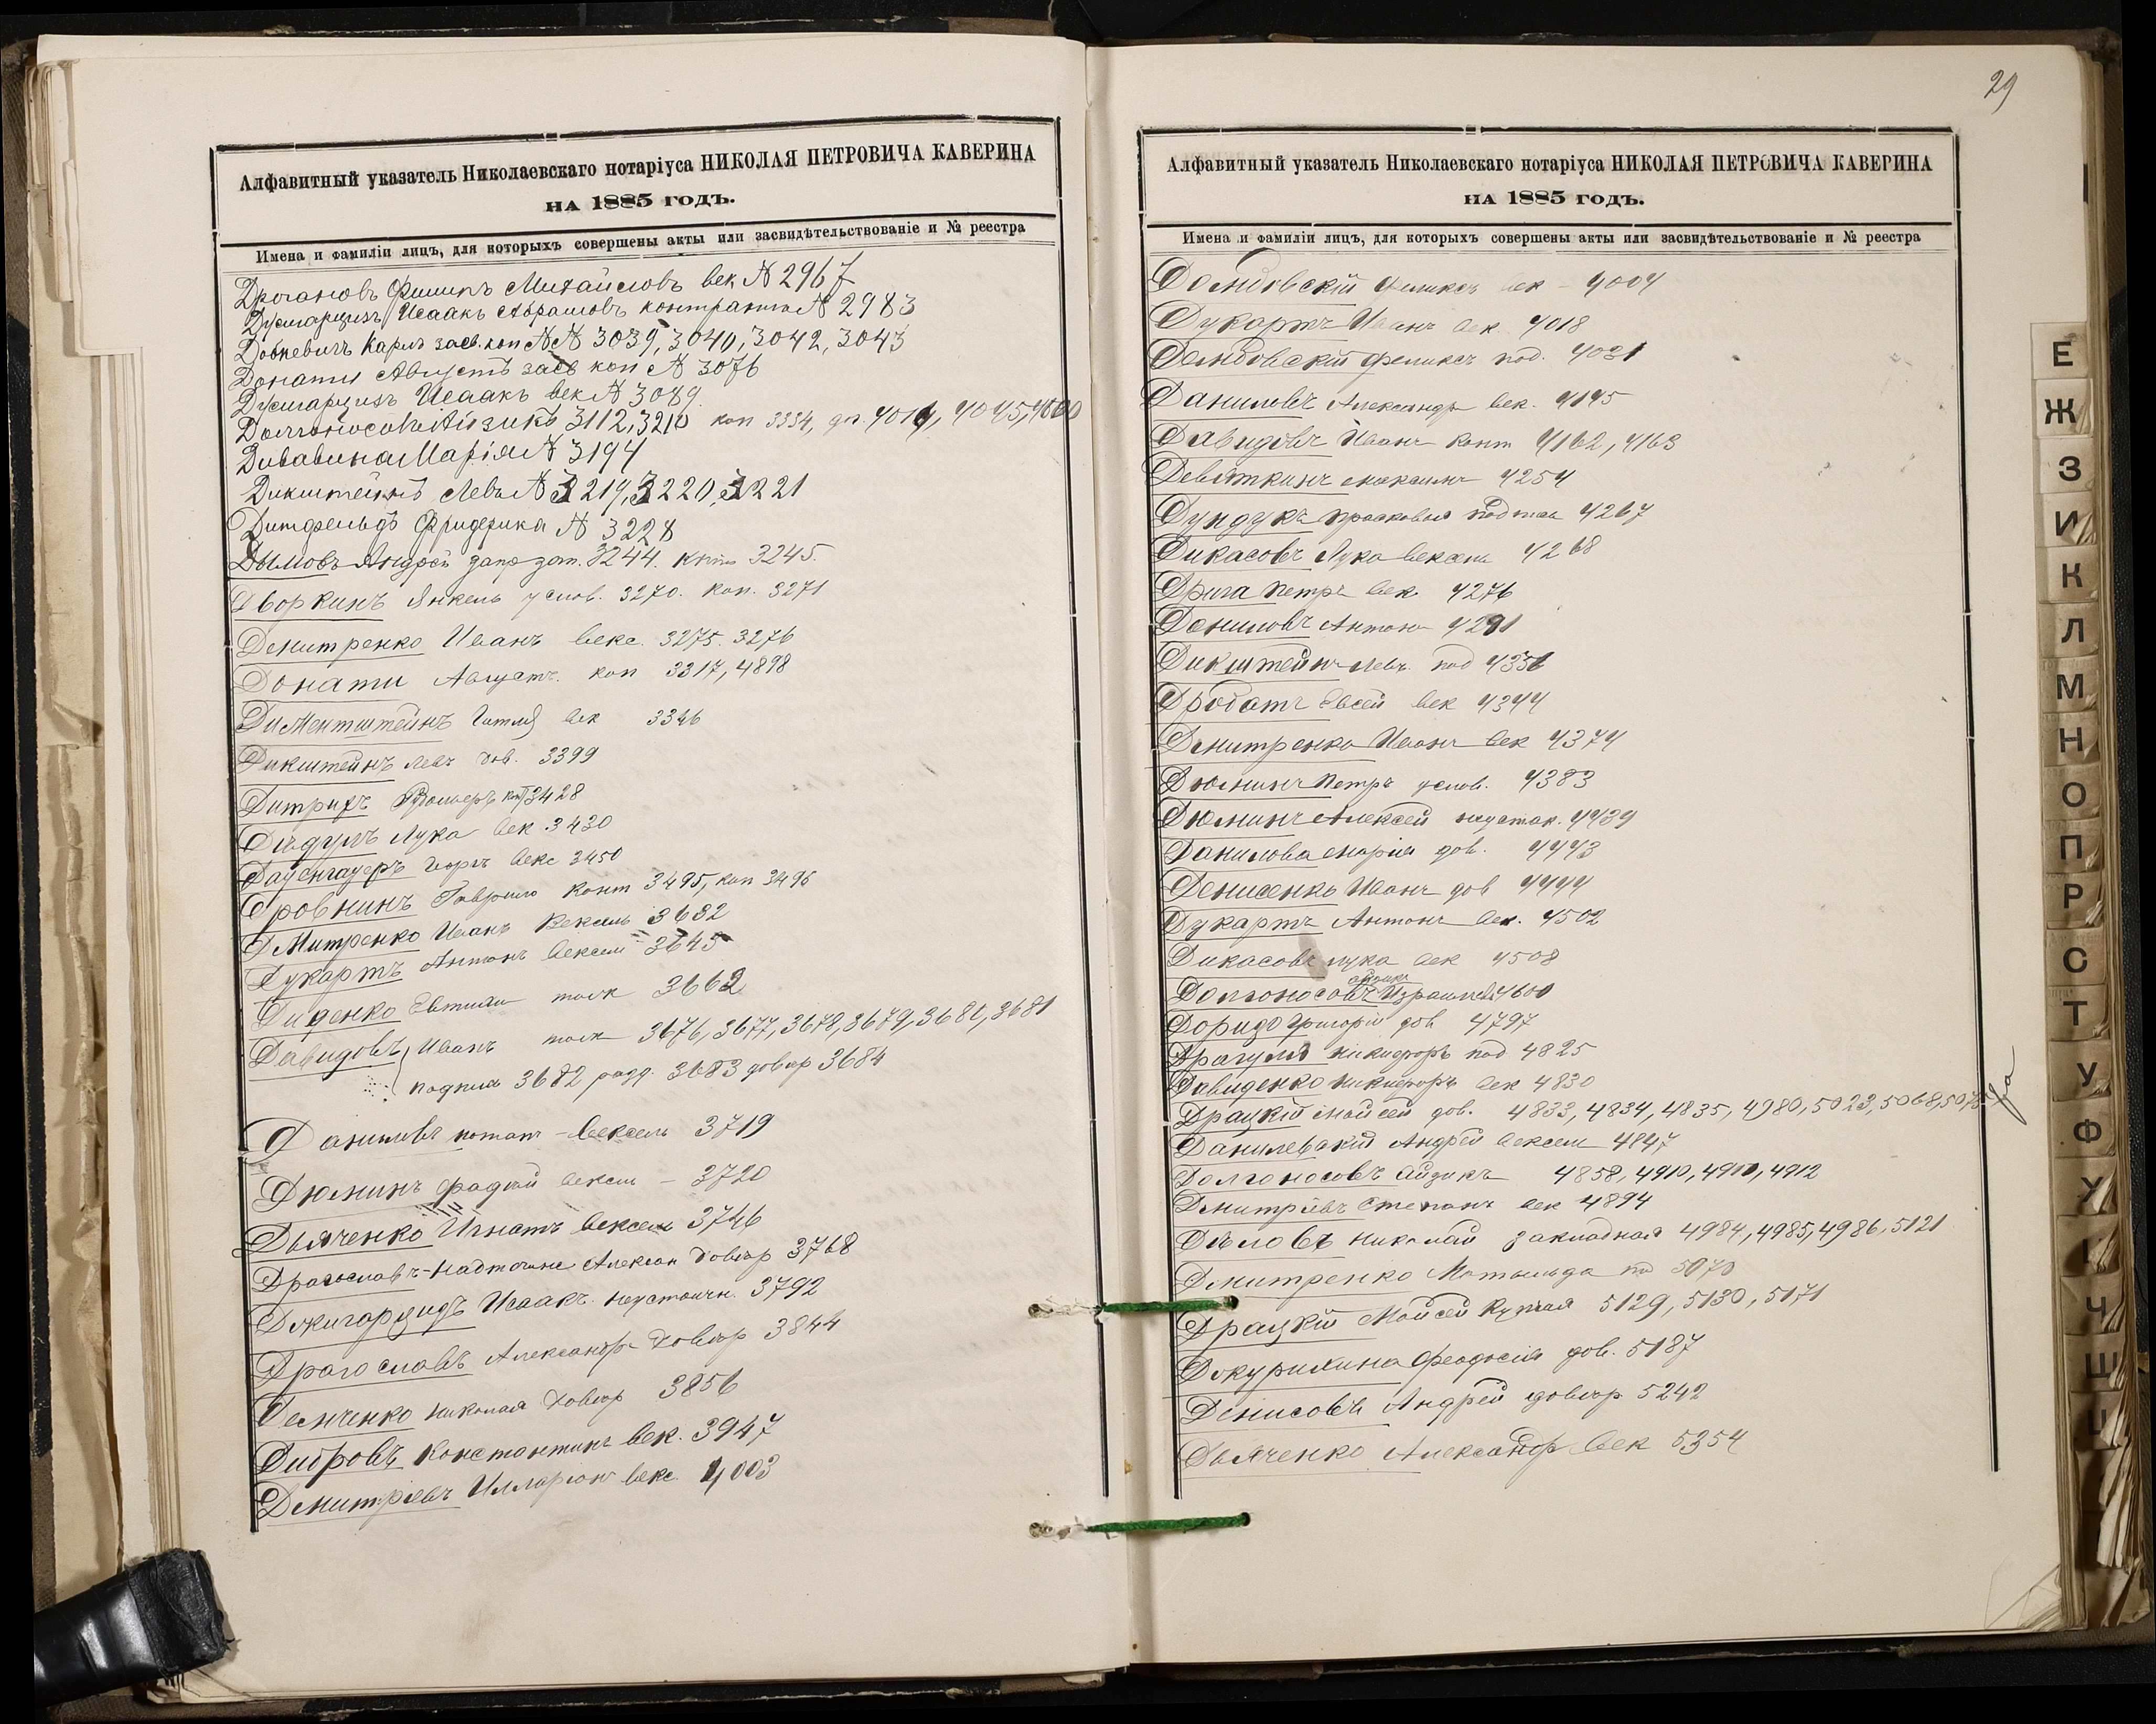 Алфавитный указатель Николаевскаго нотаріуса НИКОЛАЯ ПЕТРОВИЧА КАВЕРИНА
НА 1885 ГОДЪ.
Имена и фамиліи лицъ, для которыхъ совершены акты или засвидѣтельствованіе и № реестра
Филипъ Михайловъ век № 2967
Исаакъ Абрамовъ контракта № 2983
Довкевичъ Карлъ засв. коп №№ 3039, 3040, 3042, 3043
Донати Августъ засв коп № 3076
Исаакъ век № 3089
Айзикъ 3112, 3210 коп 3334
Марія № 3194
Дикштейнъ Левъ № 3219, 3220, 3221
Дитфельдъ Фридерика № 3228
Дымовъ Андрей 3244. 3245.
Дворкинъ Янкель услов. 3270. коп. 3271
Дмитренко Иванъ векс. 3275. 3276
Донати Августъ. коп 3317, 4898
Диментштейнъ век 3346
Дикштейнъ Левъ дов. 3399
Дитрихъ 3428
Дѣдулъ Лука век 3430
Векс 3450
Дровнинъ Гаврило Конт 3495, коп 3496
Дмитренко Иванъ Вексель 3632
Дукартъ Антонъ вексель 3645
Диденко 3662
Давидовъ Иванъ 3676, 3677, 3678, 3679, 3680, 3681
подпись 3682 3683 довѣр 3684
Даниловъ вексель 3719
Дюминъ вексель – 3720
Дьяченко Игнатъ вексель 3746
Драгославъ Алексан Довѣр 3768
Исаакъ неустоичн. 3792
Драгославъ Александръ Довѣр 3844
Демченко Николая Довѣр 3856
Дибровъ Константинъ век. 3947
Дмитріевъ Илларіонъ векс. 4003
29
Алфавитный указатель Николаевскаго нотаріуса НИКОЛАЯ ПЕТРОВИЧА КАВЕРИНА
НА 1885 ГОДЪ.
Имена и фамиліи лицъ, для которыхъ совершены акты или засвидѣтельствованіе и № реестра
Домбовскій Феликсъ век – 4004
Дукартъ Иванъ век 4018
Домбовскій Феликсъ под. 4021
Даниловъ Александръ век. 4145
Давидовъ Иванъ конт 4162, 4163
Девяткинъ Максимъ 4254
Дундукъ Прасковья 4267
Дикасовъ Лука вексель 4268
Дрига Петръ век. 4276
Даниловъ Антонъ 4291
Дикштейнъ Левъ под
Дробатъ Евсей век 4344
Дмитренко Иванъ век 4374
Дюминъ Петръ услов. 4383
Дюминъ Алексей неустой. 4439
Данилова Марія дов. 4443
Денисенко Иванъ дов 4444
Дукартъ Антонъ век. 4502
Дикасовъ Лука век 4508
Долгоносовъ
Доридо Григорій дов 4797
Драгуля Никифоръ под 4825
Давиденко Никифоръ век 4830
Драцкій Мойсей дов. 4833, 4834, 4835, 4980, 5023, 5068, 5075
Данилевскій Андрей вексель 4847
Долгоносовъ Айзикъ 4858, 4910, 4911, 4912
Дмитріевъ Степанъ век 4894
Дѣловъ Николай закладная 4984, 4985, 4986, 5121
Дмитренко Матильда 5070
Драцкій Мойсей Купчая 5129, 5130, 5171
Докурихина Феодосія дов. 5187
Денисовъ Андрей довѣр 5242
Дьяченко Александръ век 5354
Е
Ж
З
И
К
Л
М
Н
О
П
Р
С
Т
У
Ф
Х
Ч
Ш